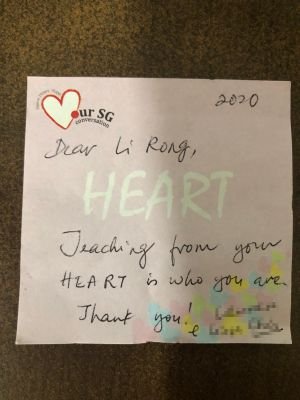 our SG
conversation
2020
Dear Li Rong,
HEART
Teaching from your
HEART is who you are.
Thank you!